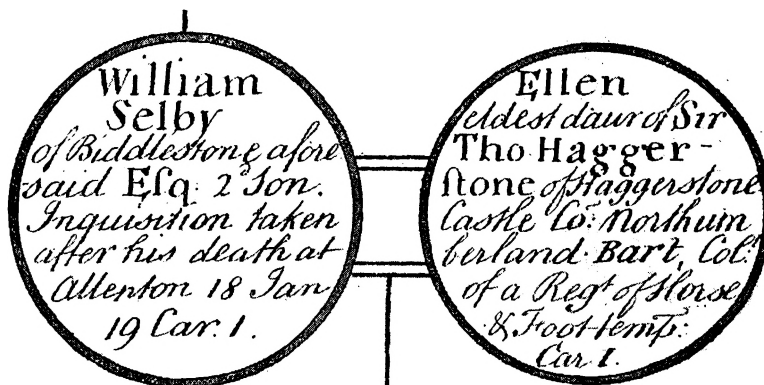 William
Selby
of Biddlestone afore
said Eſq 2ᵈ Son.
Inquisition taken
after his death at
Allenton 18 Jan
19 Car. 1.
Ellen
eldest daur of Sir
Tho Hagger-
ſtone of Haggerstone
Castle Co: Northum
berland Bart, Col:
of a Regᵗ of Horse
& Foot temp:
Car 1.